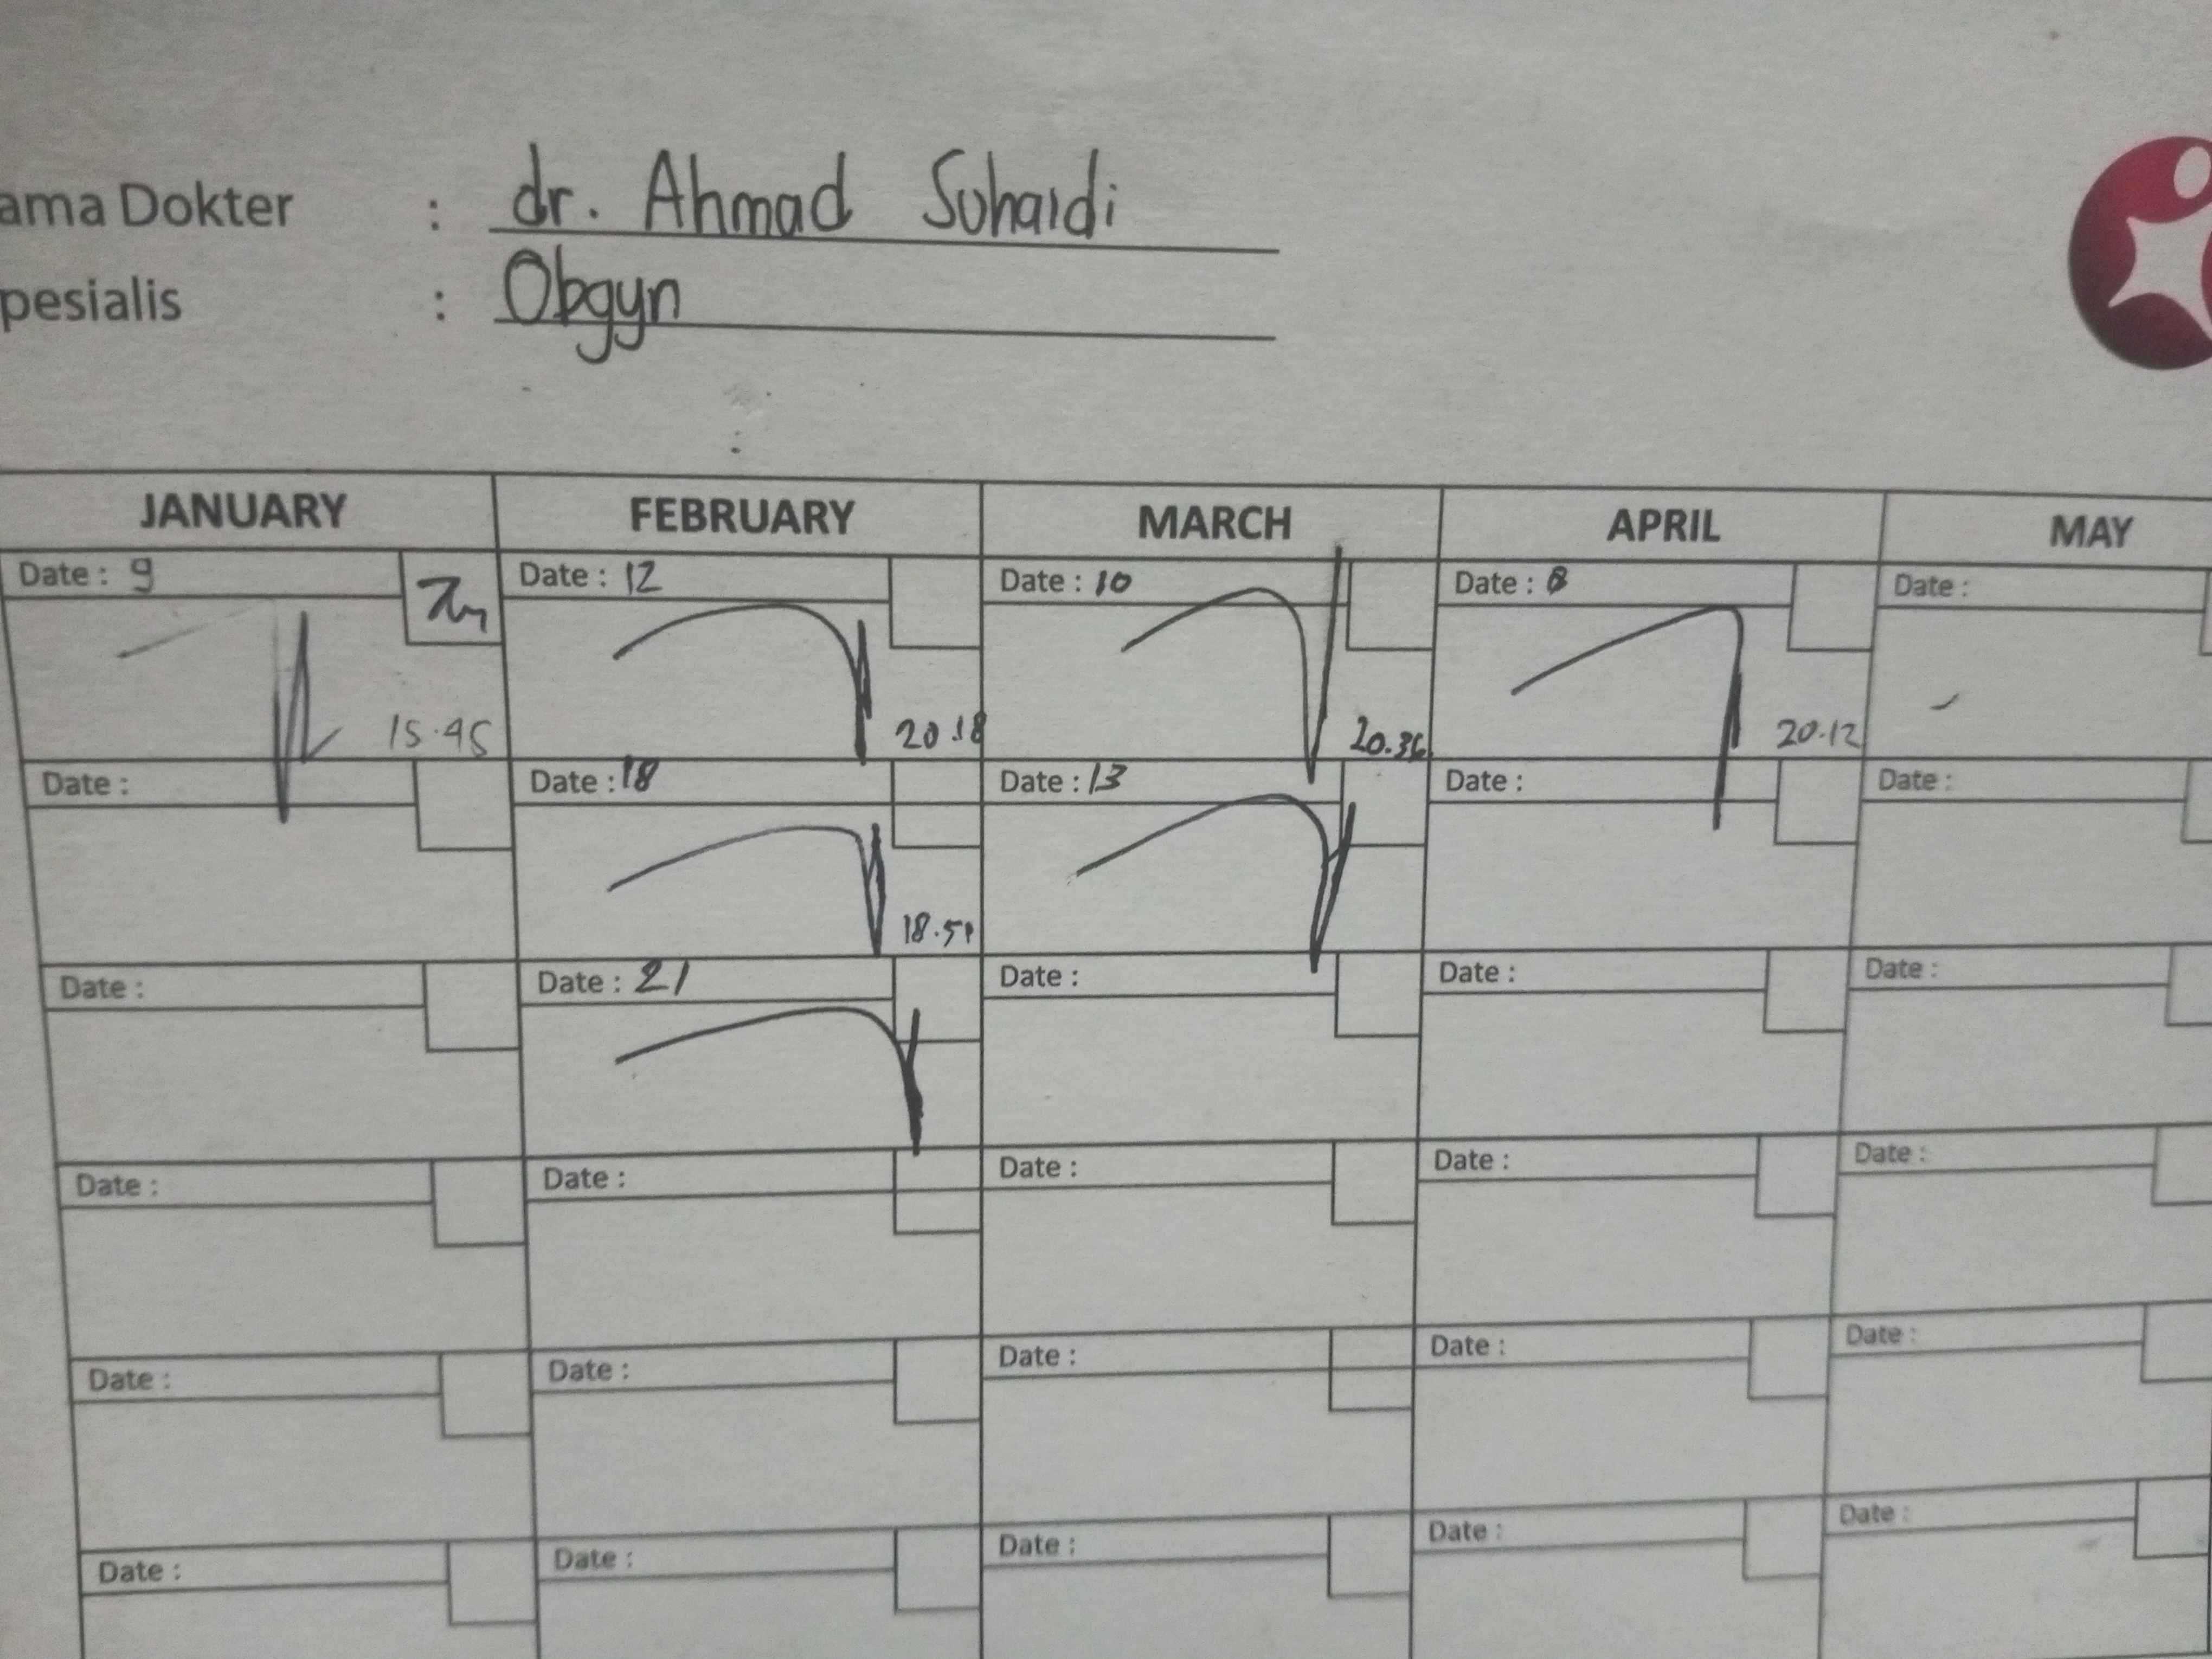 ama Dokter : dr. Ahmad Suhaidi
pesialis : Obgyn
JANUARY FEBRUARY MARCH APRIL MAY
Date : 9 Date : 12 Date : 10 Date : 8 Date :
15.45 20.18 20.36 20.12
Date : Date : 18 Date : 13 Date : Date :
18.51
Date : Date : 21 Date : Date : Date :
Date : Date : Date : Date : Date :
Date : Date : Date : Date : Date :
Date : Date : Date : Date : Date :